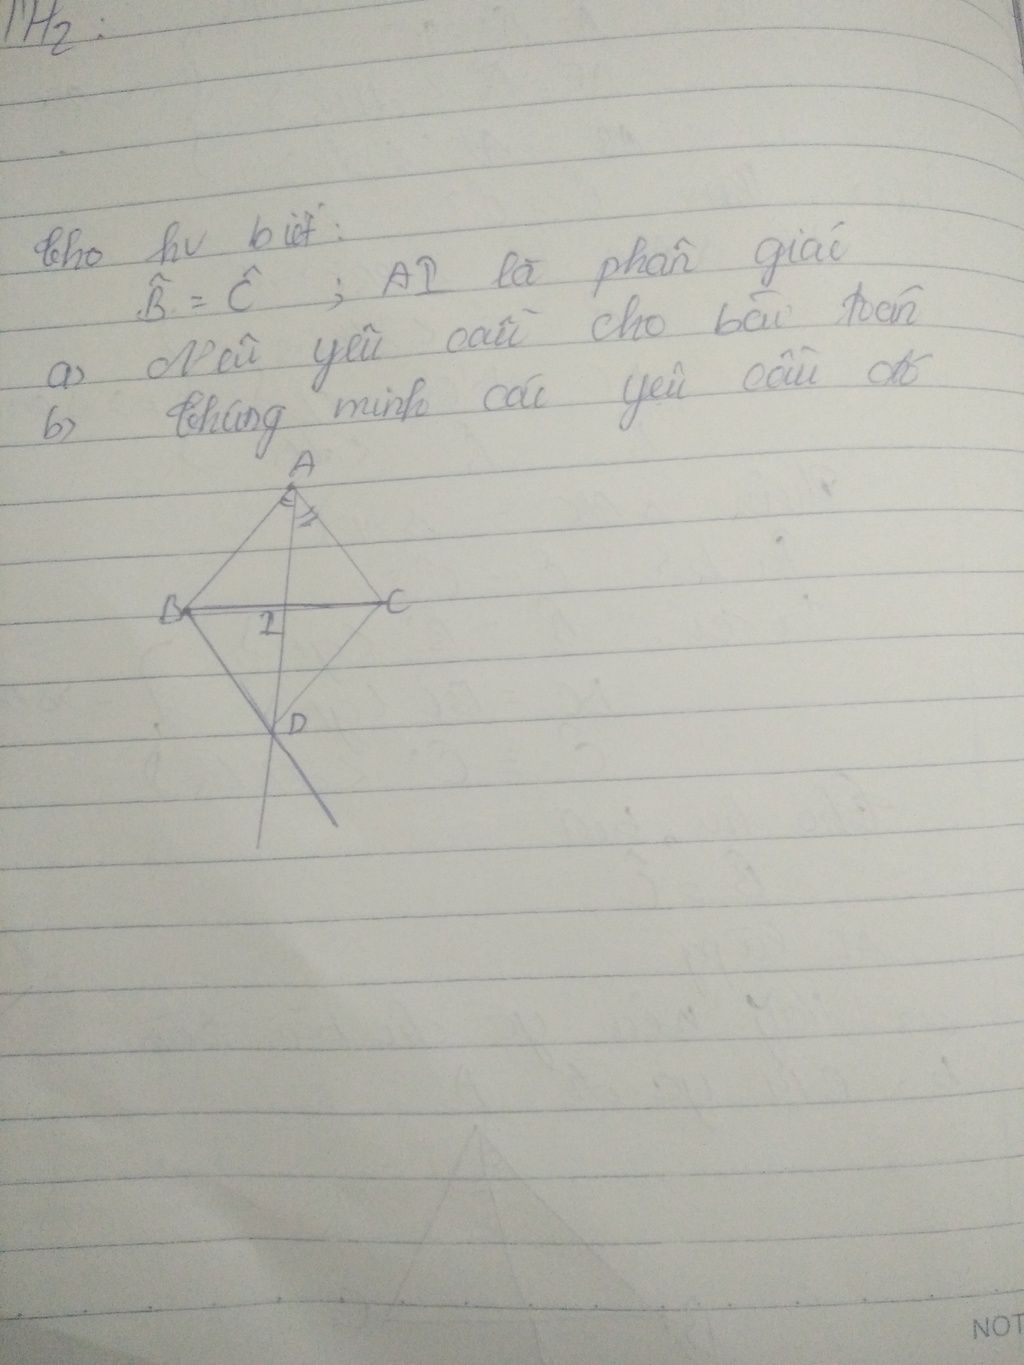 TH2:
Cho hv biết:
B̂ = Ĉ ; AI là phân giác
a) Nêu yêu cầu cho bài toán
b) Chứng minh các yêu cầu đó
A
B
C
I
D
NOT